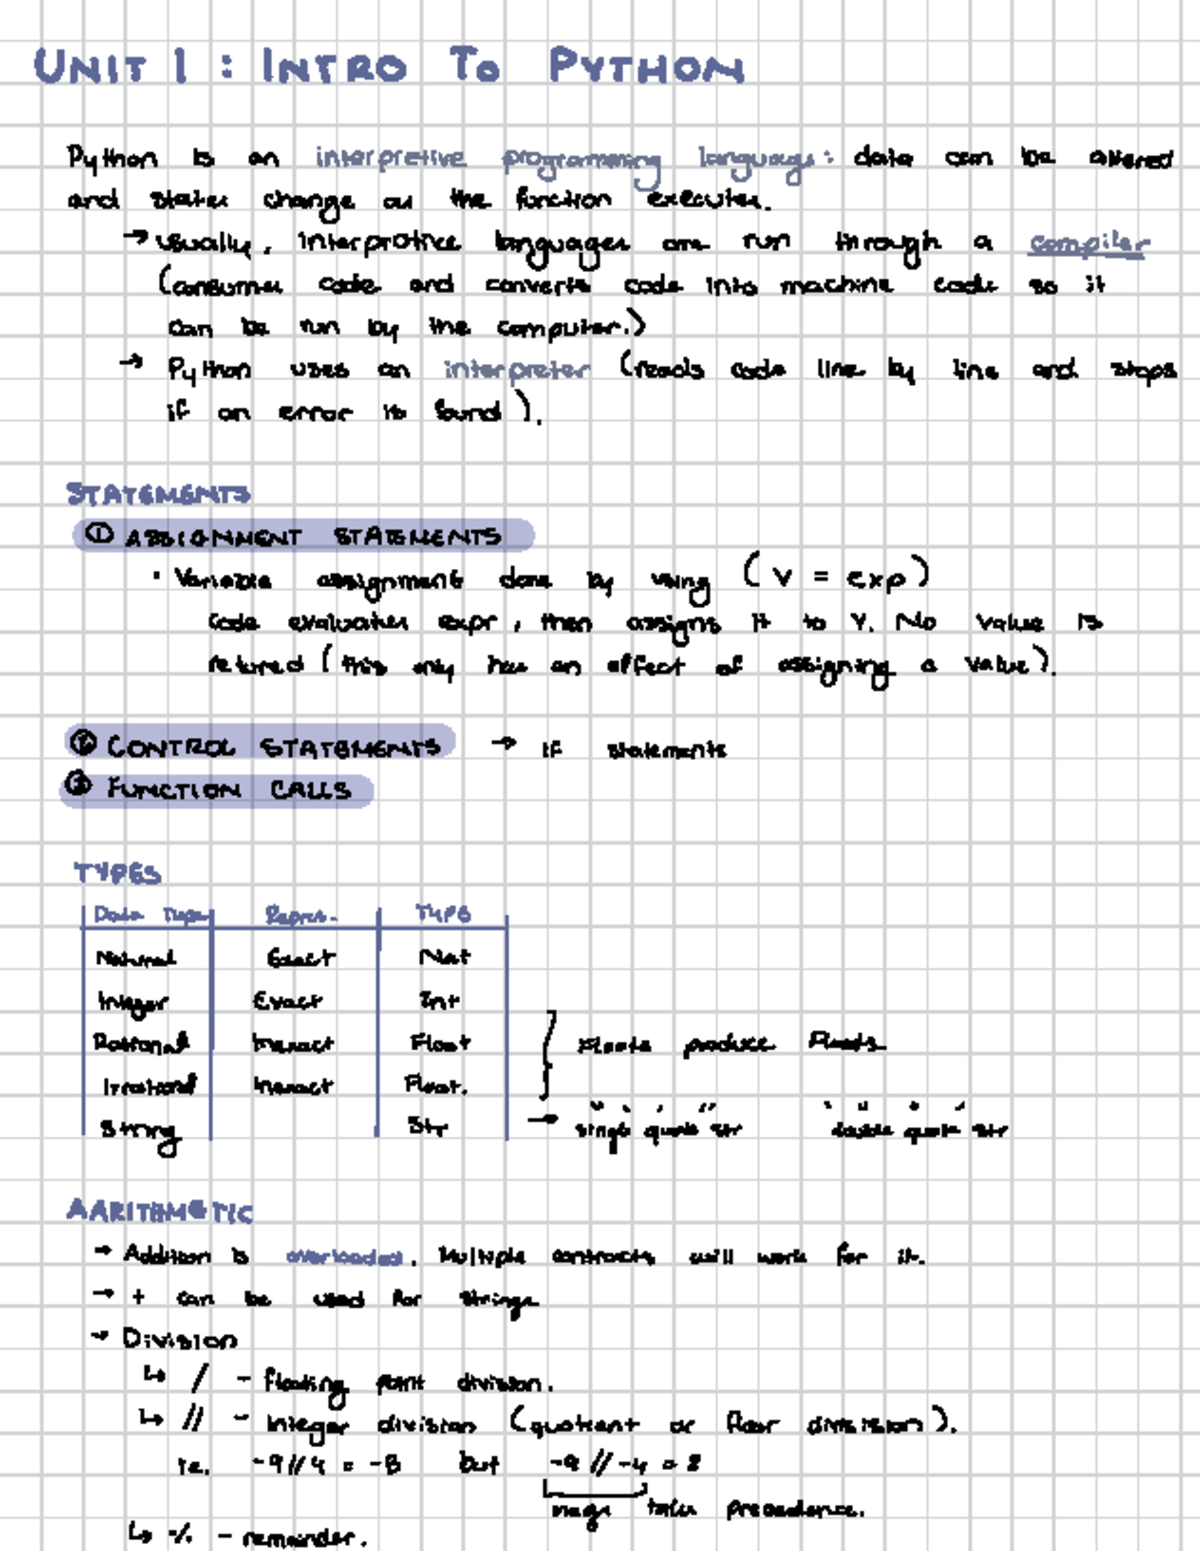 UNIT 1 : INTRO TO PYTHON
Python is an interpretive programming language: data can be altered
and states change as the function executes.
→ usually, interpretive languages are run through a compiler
(consumes code and converts code into machine code so it
can be run by the computer.)
→ Python uses an interpreter (reads code line by line and stops
if an error is found).
STATEMENTS
① ASSIGNMENT STATEMENTS
· Variable assignment done by using (v = exp)
Code evaluates expr, then assigns it to V. No value is
retured (this only has an effect of assigning a value).
② CONTROL STATEMENTS → if statements
③ FUNCTION CALLS
TYPES
Data Type Repres. TYPE
Natural Exact Nat
Integer Exact Int
Rational Inexact Float
Irrational Inexact Float.
Floats produce floats
String Str → ' ' single quote str " " double quote str
AARITHMETIC
→ Addition is overloaded. Multiple contracts will work for it.
→ + can be used for strings
→ Division
↳ / - floating point division.
↳ // - integer division (quotient or floor division).
ie. -9//4 = -3 but -9//-4 = 2
takes precedence.
↳ % - remainder.